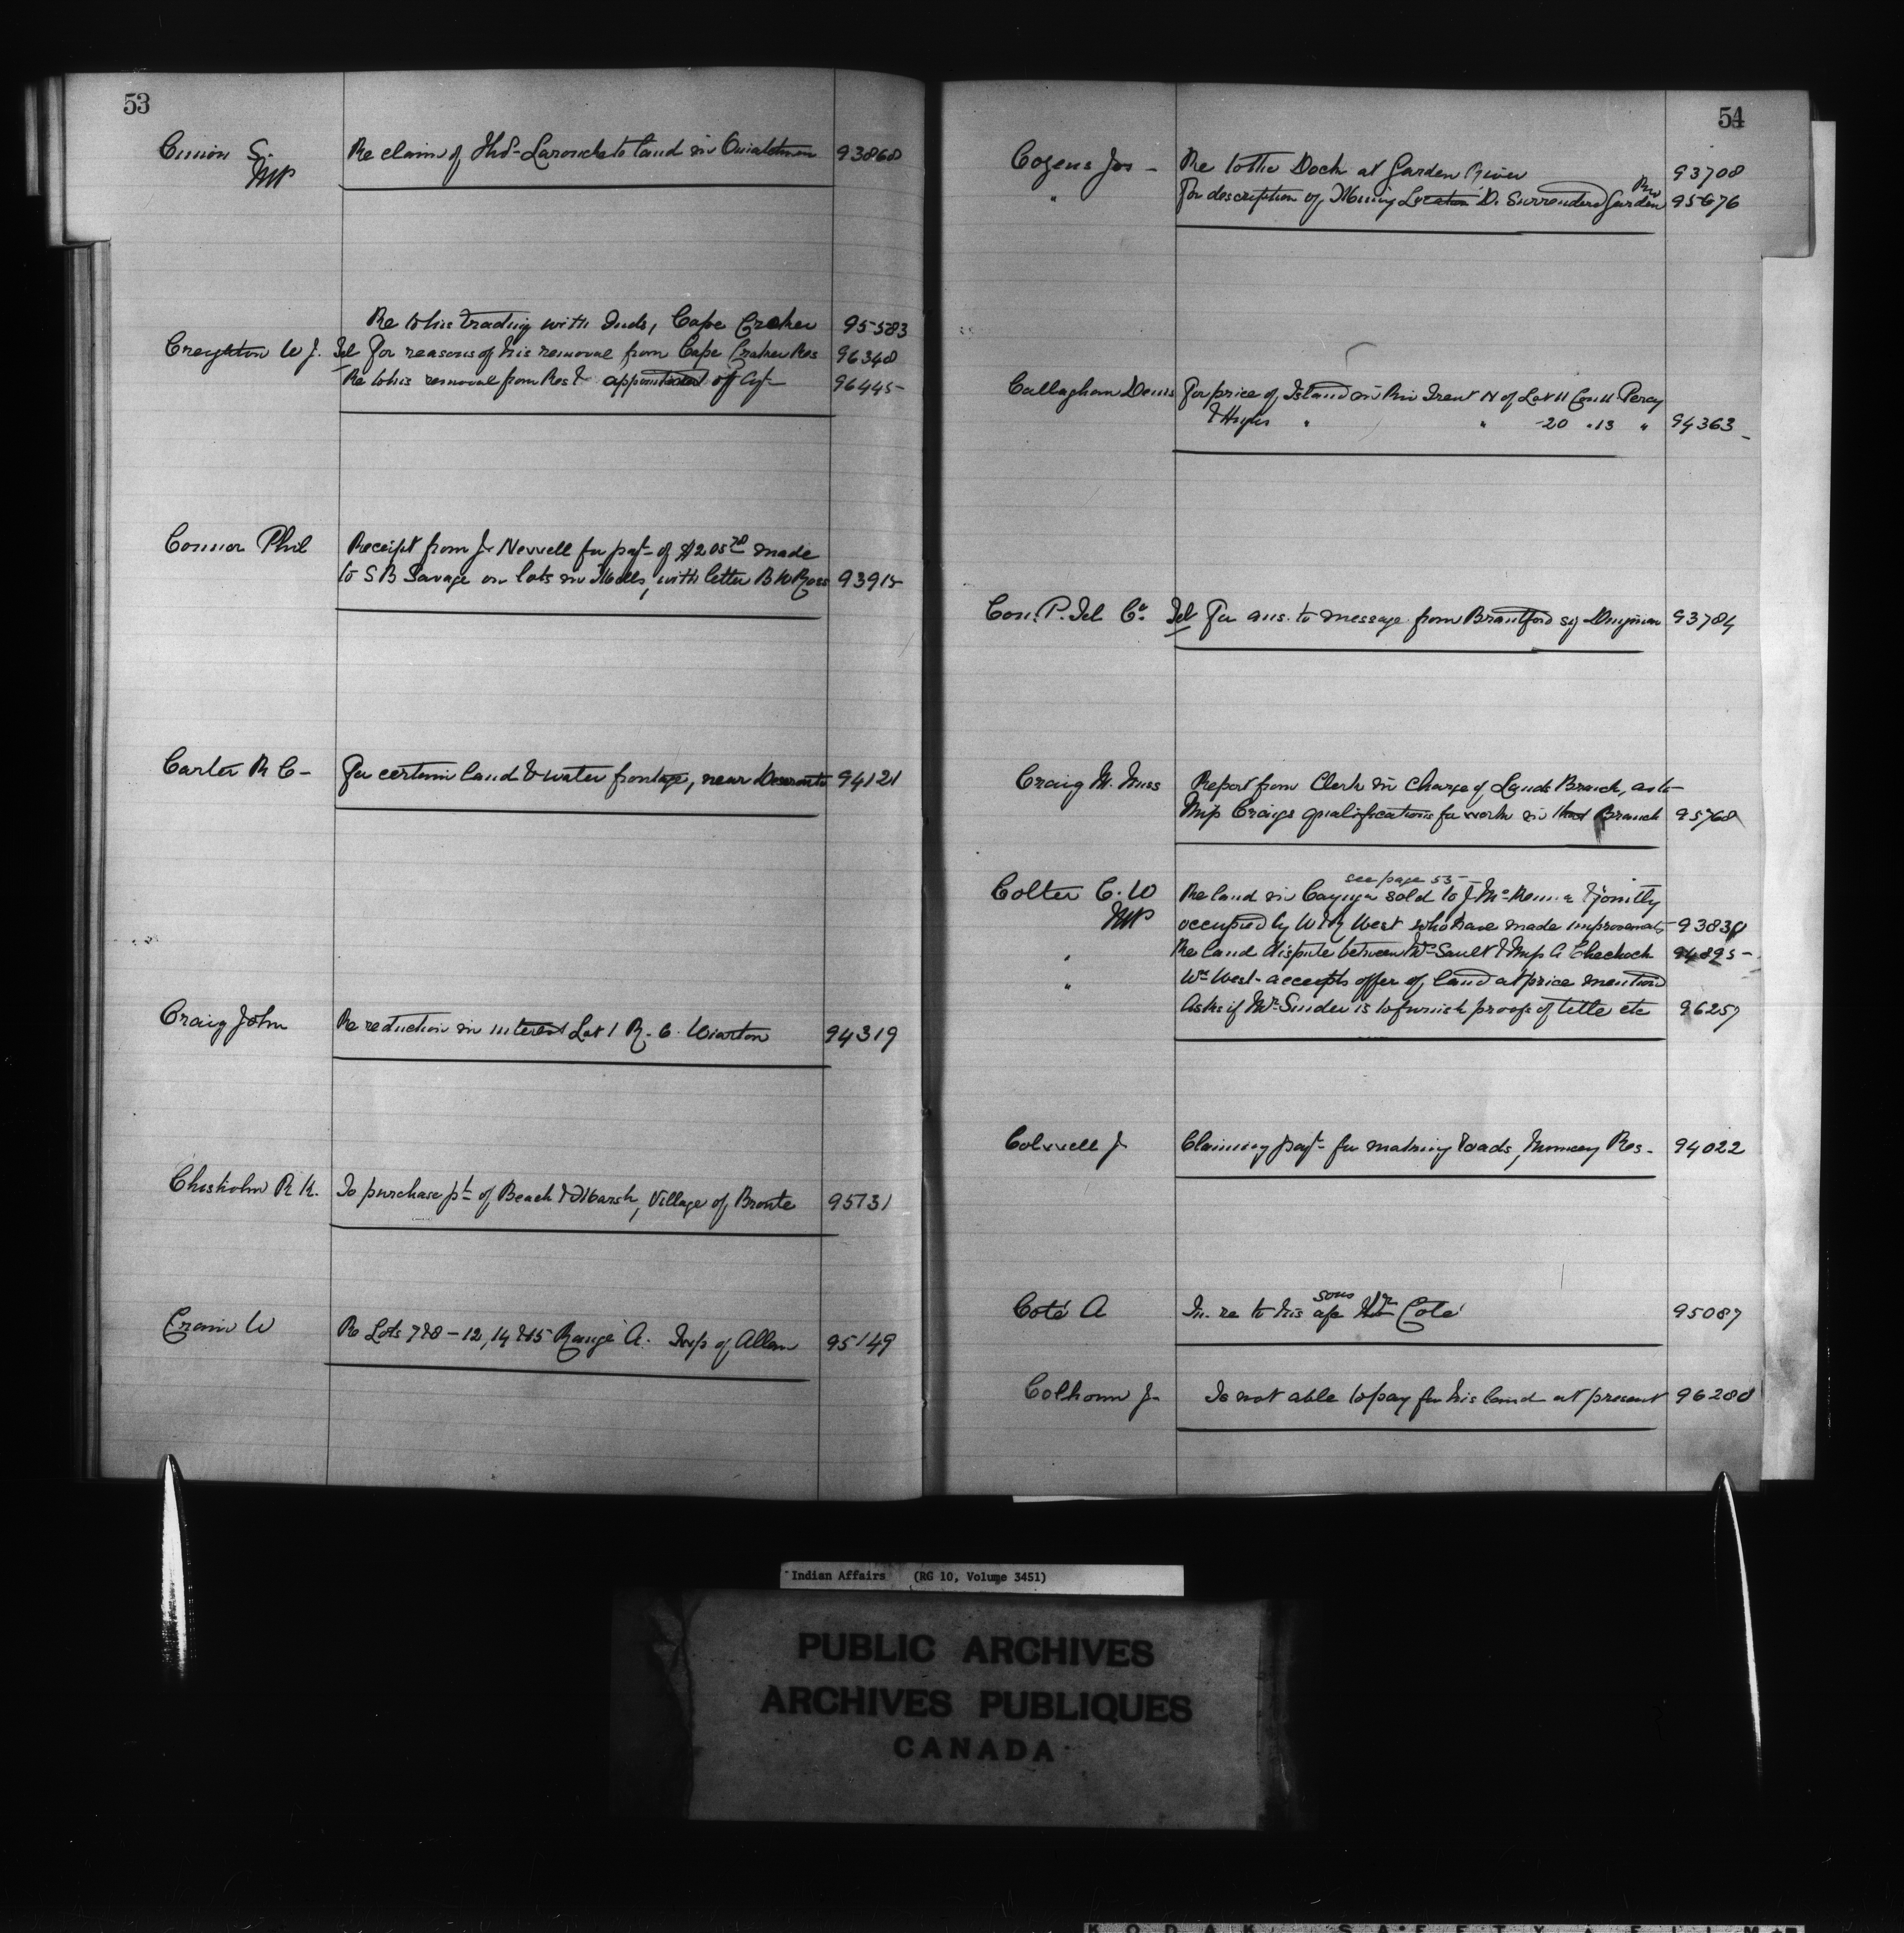 53
Curran S. Re claim of Thos Larouche to land in Ouiatchouan 93868
MP
Re to his trading with Inds, Cape Croker 95583
Creighton W J. Tel For reasons of his removal from Cape Croker Res 96348
Re to his removal from Res & appointment of Agt 96445
Connor Phil Receipt from J. Newell for payt of $205 70 made
to S B Savage on lots in Mills, with letter B W Ross 93915
Carter R C - For certain land & water frontage, near Deseronto 94121
Craig John Re reduction in interest Lot 1 R. 6. Wiarton 94319
Chisholm R K. To purchase pt of Beach & Marsh, Village of Bronte 95131
Cram W Re Lots 7 & 8 - 12, 14 & 15 Range A. Twp of Allan 95149
54
Cozens Jos - Re to the Dock at Garden River 93708
" For description of Mining Location D. Surrendered Garden Riv 95676
Callaghan Denis For price of Island in Riv Trent N of Lot 11 Con 11 Percy
" " -20 " 13 " 94363
Can. P. Tel Co. Tel For ans. to message from Brantford sig Dingman 93784
Craig M. Miss Report from Clerk in Charge of Lands Branch, as to
Miss Craigs qualifications for work in that Branch 95768
see page 53
Colter C. W Re land in Cayuga sold to J. McKenna & jointly
MP occupied by W & R West who have made improvements 93838
" Re land dispute between Wm Sault & Mrs A Chechock 94895
" Wm West - accepts offer of land at price mentioned
Asks if Mr Snider is to furnish proofs of title etc 96257
Colwell J Claiming payt for making roads, Muncey Res. 94022
Coté A In. re to his sons ape Wm Coté 95087
Colhoun J. Is not able to pay for his land at present 96288
Indian Affairs (RG 10, Volume 3451)
PUBLIC ARCHIVES
ARCHIVES PUBLIQUES
CANADA
KODAK SAFETY FILM